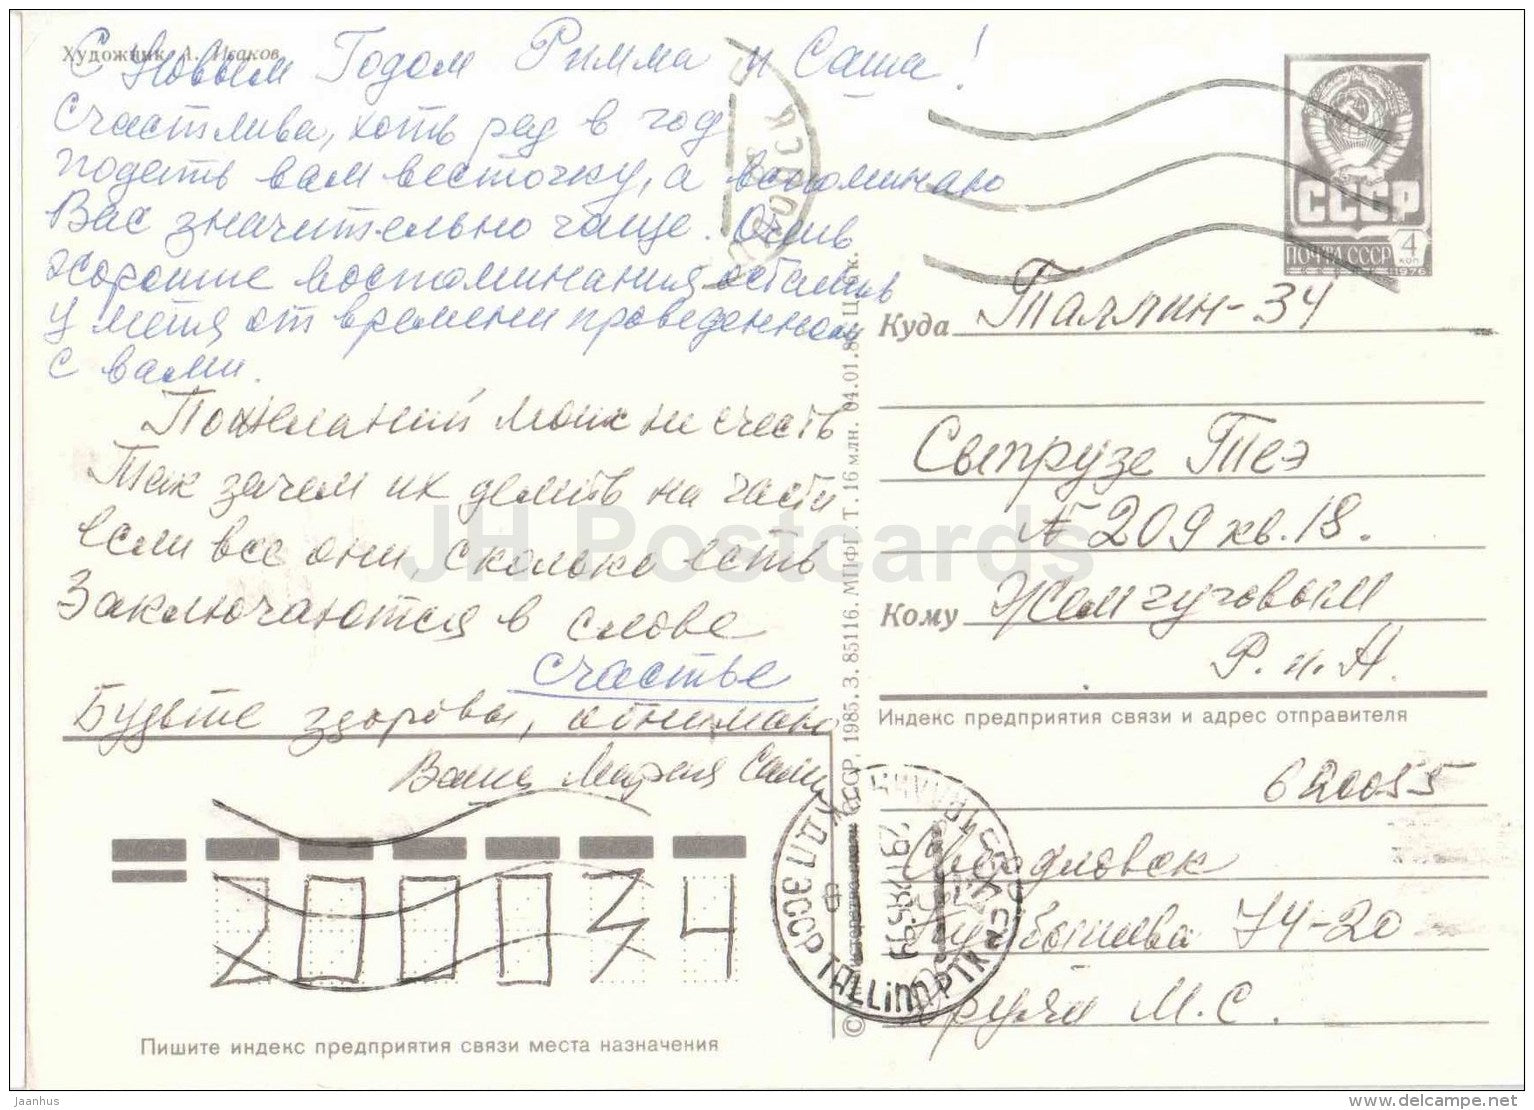 Художник А. Исаков
С Новым Годом Римма и Саша!
Счастлива, хоть раз в год
подать вам весточку, а вспоминаю
Вас значительно чаще. Очень
хорошие воспоминания остались
у меня от времени проведенном
с вами.
Пожеланий моих не счесть
Так зачем их делить на части
если все они, сколько есть
Заключаются в слове
счастье
Будьте здоровы, обнимаю
Ваша Мария Сам
Пишите индекс предприятия связи места назначения
200034
СССР
ПОЧТА СССР 4 коп
1976
Куда Таллин-34
Сыпрузе Теэ
№ 209 кв. 18.
Кому Жемчуговым
Р. и А.
Индекс предприятия связи и адрес отправителя
620055
Свердловск
Куйбышева 74-20
М. С.
СССР, 1985. З. 85116. МПФГ. Т. 16 млн. 04.01.8 Ц. к.
ЭССР TALLINN
JH Postcards
Jaanhus
delcampe.net